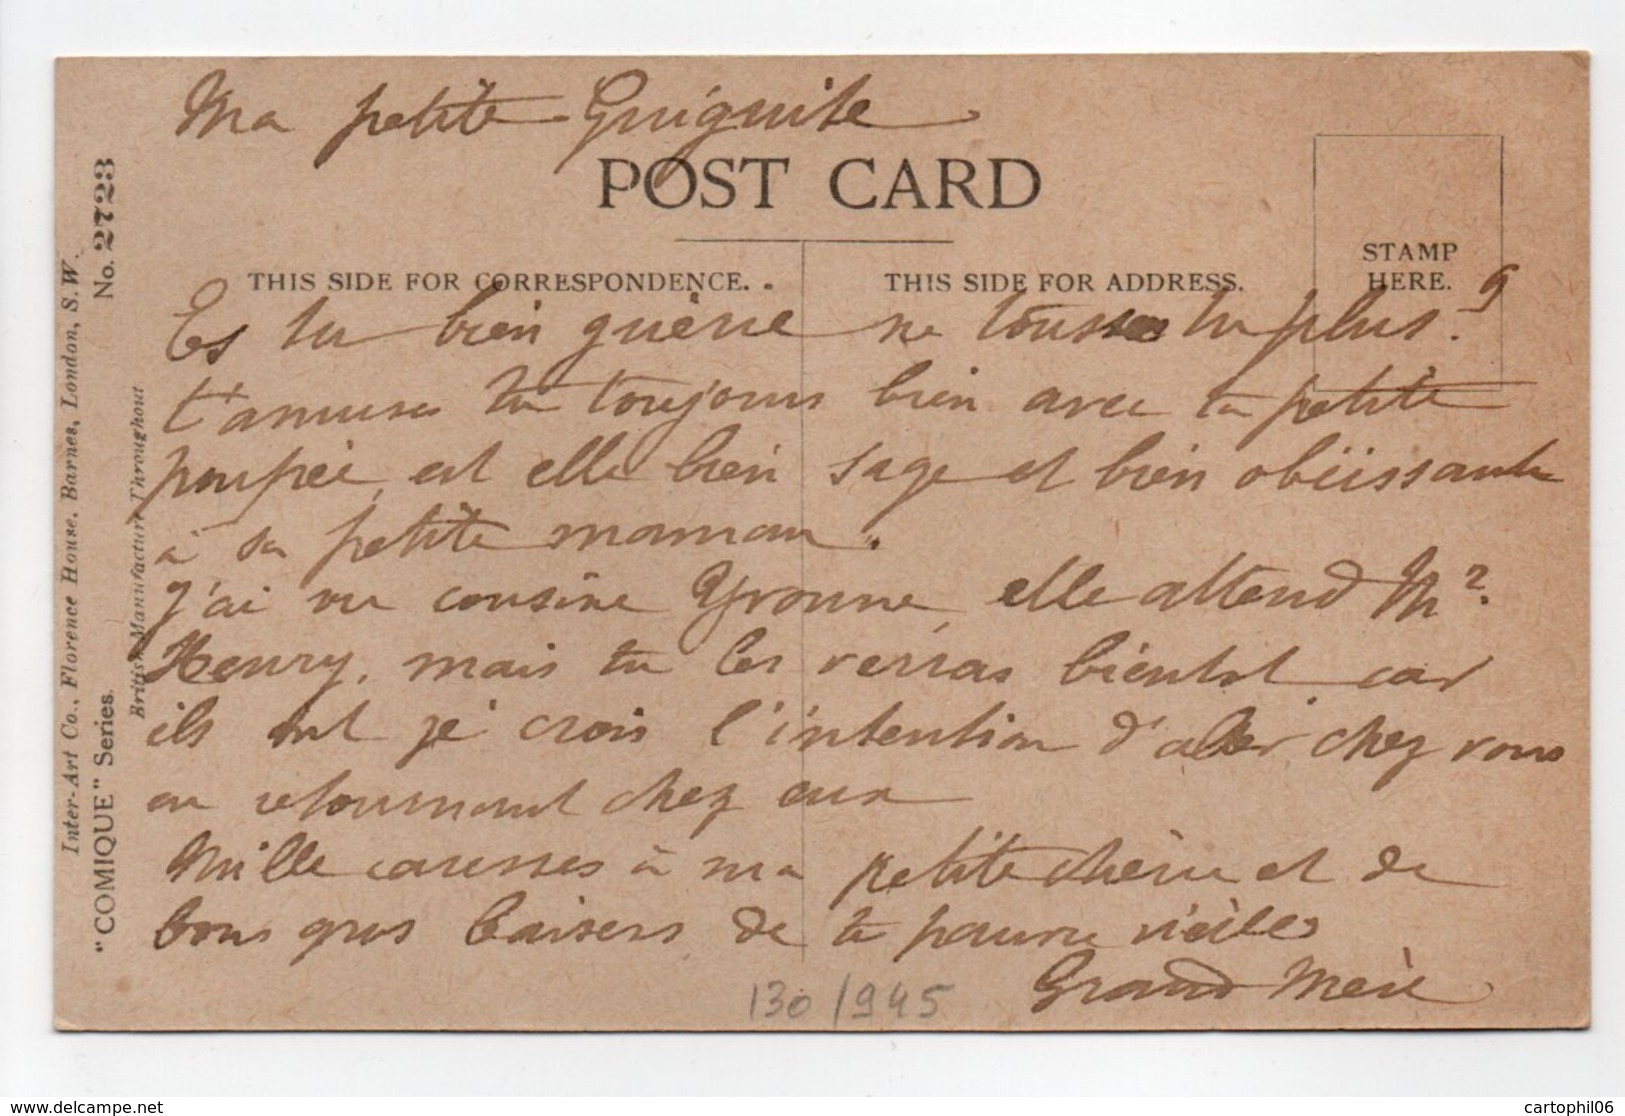 Ma petite Guiguite
POST CARD
THIS SIDE FOR CORRESPONDENCE.
THIS SIDE FOR ADDRESS.
STAMP
HERE.
Es tu bien guérie ne tousses tu plus ?
t'amuses tu toujours bien avec ta petite
poupée, est elle bien sage et bien obéissante
à sa petite maman.
J'ai vu cousine Yvonne, elle attend Mr.
Henry, mais tu les verras bientot car
ils ont je crois l'intention d'aller chez vous
en retournant chez eux
Mille caresses à ma petite chérie et de
bons gros baisers de ta pauvre vieille
Grand Mère
130/945
Inter-Art Co., Florence House, Barnes, London, S.W.
"COMIQUE" Series.
No. 2723
British Manufacture Throughout
delcampe.net
cartophil06